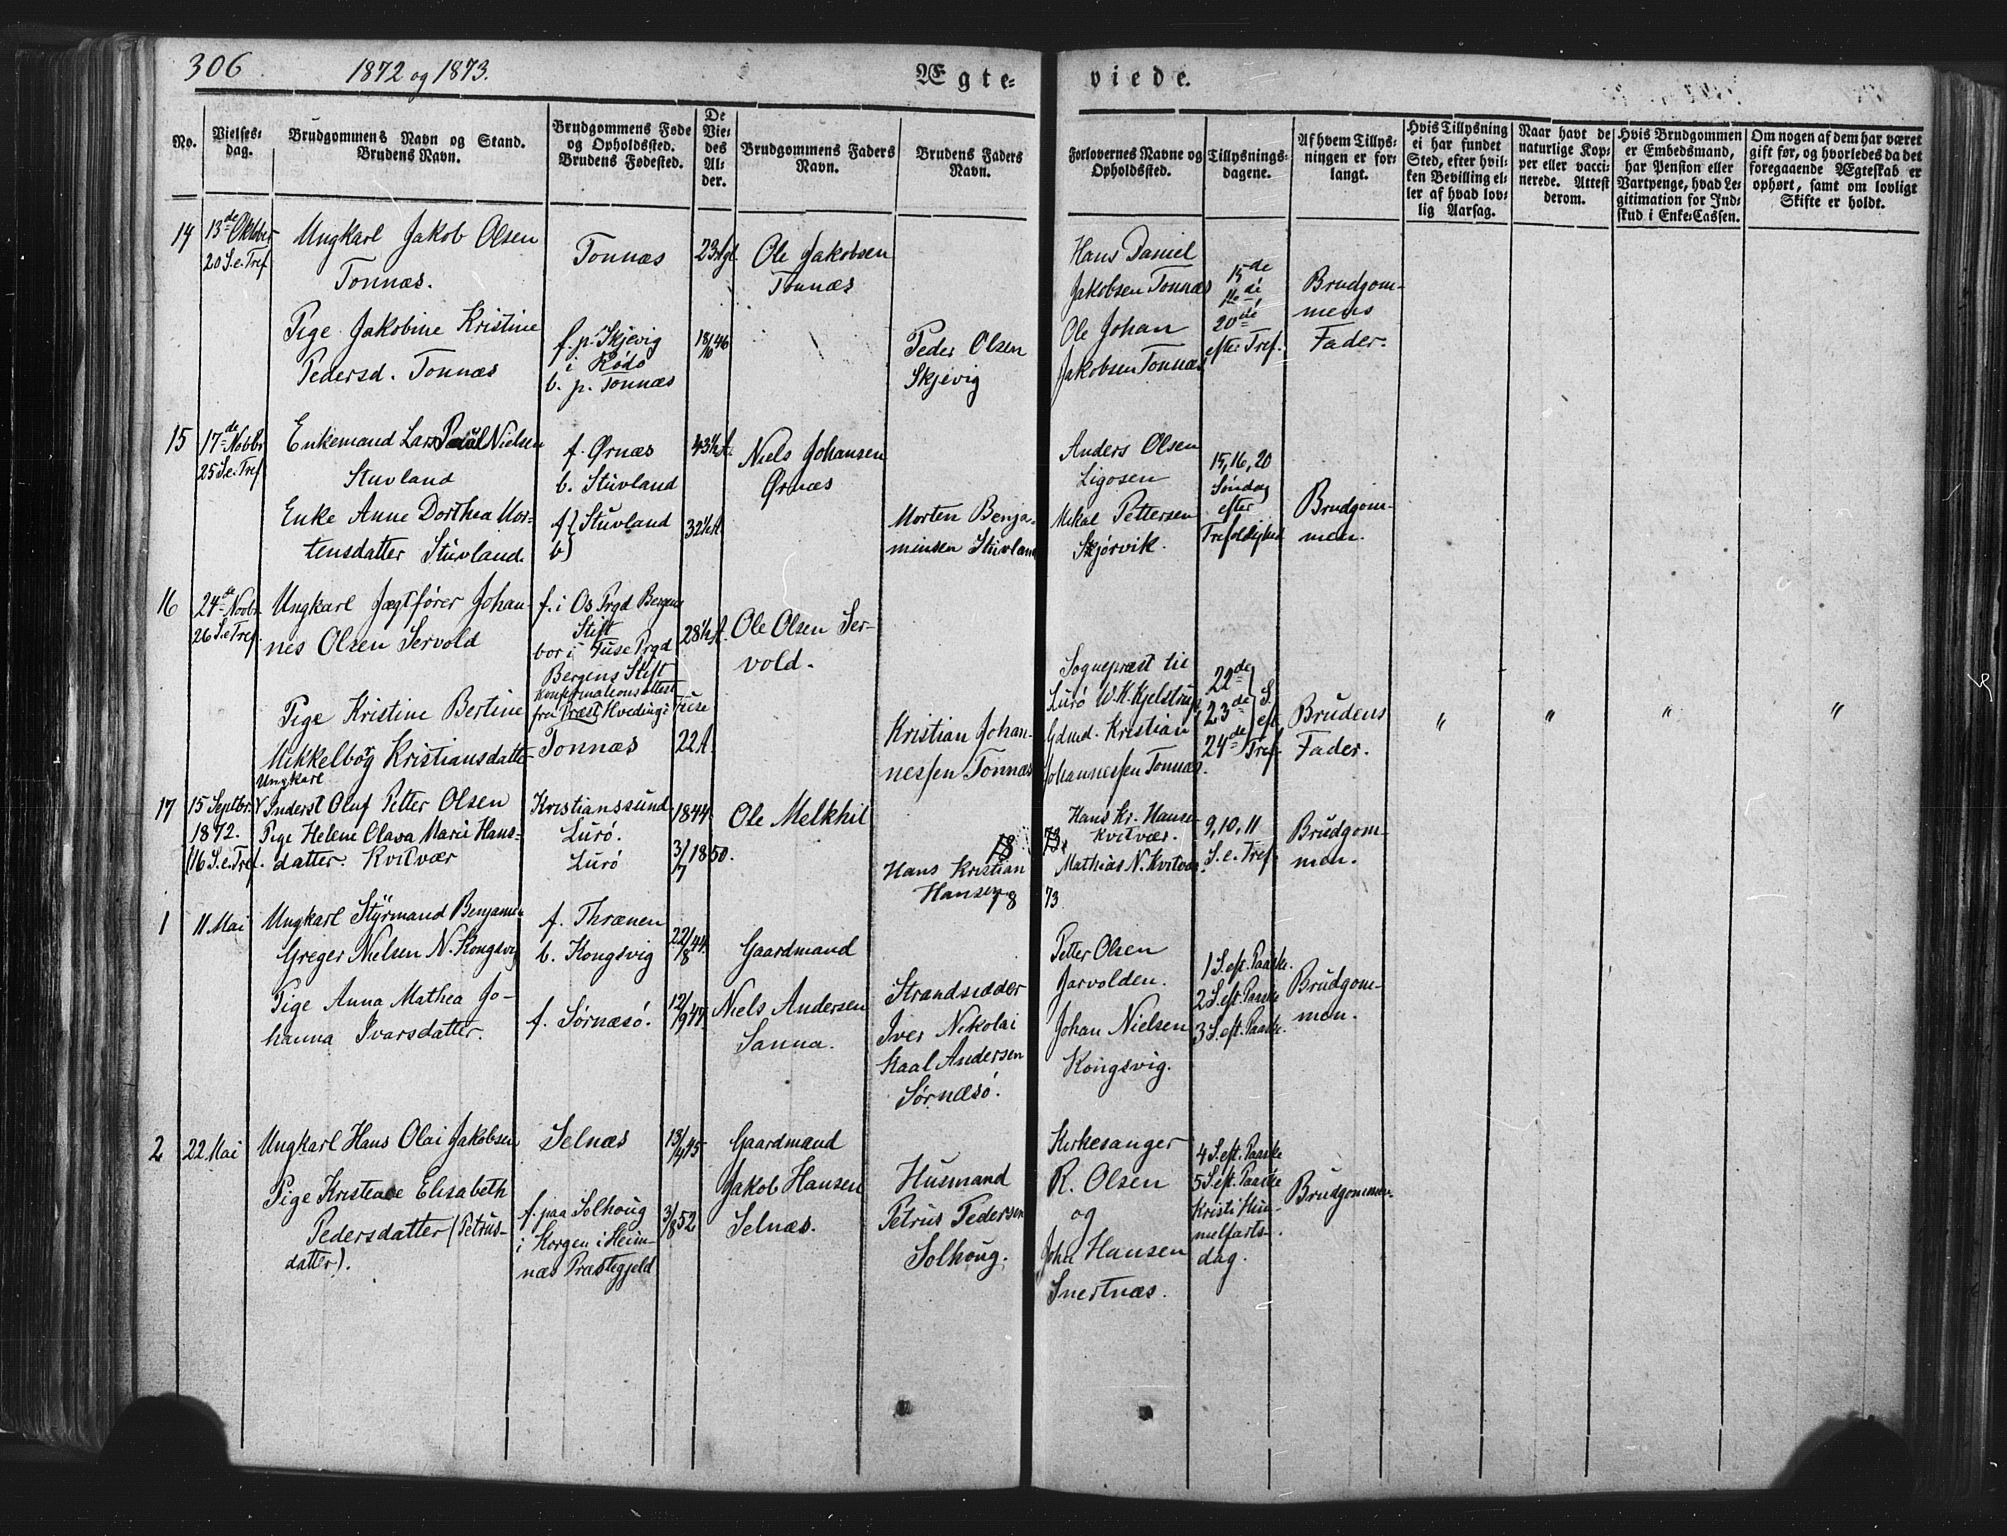 306
1872 og 1873.
Ægte=
viede.
No.
Vielses=
dag.
Brudgommens Navn og Stand.
Brudens Navn.
Brudgommens Føde
og Opholdssted.
Brudens Fødested.
De
Vie=
des
Al=
der.
Brudgommens Faders
Navn.
Brudens Faders
Navn.
Forlovernes Navne og
Opholdssted.
Tillysnings=
dagene.
Af hvem Tillys=
ningen er for=
langt.
Hvis Tillysning
ei har fundet
Sted, efter hvil=
ken Bevilling el=
ler af hvad lov=
lig Aarsag.
Naar havt de
naturlige Kop=
per eller vacci=
nerede. Attest
derom.
Hvis Brudgommen
er Embedsmand,
har Pension eller
Vartpenge, hvad Le=
gitimation for Ind=
skud i Enke=Cassen.
Om nogen af dem har været
gift før, og hvorledes da det
foregaaende Ægteskab er
ophørt, samt om lovligt
Skifte er holdt.
14
13de Oktober
20 S. e. Tref.
Ungkarl Jakob Olsen
Tonnæs.
Pige Jakobine Kristine
Pedersd. Tonnæs
Tonnæs
f. p. Skjevig
i Rødø
b. p. Tonnæs
18/10 46
Ole Jakobsen
Tonnæs
Peder Olsen
Skjevig
Hans Daniel
Jakobsen Tonnæs
Ole Johan
Jakobsen Tonnæs
15de
16de
20de
efter Tref.
Brudgom-
mens
Fader.
15
17de Novbr
25 S. e. Tref
Enkemand Lars Paul Nielsen
Stuvland
Enke Anne Dorthea Mor-
tensdatter Stuvland.
f. Ørnæs
b. Stuvland
f } Stuvland
b)
43½ A.
32½ A
Niels Johansen
Ørnæs
Morten Benja-
minsen Stuvland
Anders Olsen
Ligosen
Mikal Pettersen
Skjørvik.
15, 16, 20
Søndag
efter
Trefoldighed
Brudgom-
men.
16
24de Novbr.
26 S. e. Tref.
Ungkarl Jægtfører Johan-
nes Olsen Servold
Pige Kristine Bertine
Mikkelbørg Kristiansdatter
f. i Os Prgd Bergens
Stift
bor i Fuse Prgd
Bergens Stift
Konfirmationsattest
fra Præst Kvedingi Fuse
Tonnæs
28½ A.
22 A.
Ole Olsen Ser-
vold.
Kristian Johan-
nessen Tonnæs
Sognepræst til
Lurø W. K. Kjelstrup,
Gdmd. Kristian
Johannessen Tonnæs.
22de
23de
24de
S.
eft.
Tref.
Brudens
Fader.
"
"
"
"
17
15 Septbr.
1872.
(16 S. e. Tref.
Ungkarl
Inderst Oluf Petter Olsen
Pige Helene Olava Marie Hans-
datter. Kvitvær
Kristianssund
Lurø.
Lurø
1844
3/7 1850.
Ole Melkhil
Hans Kristian
Hansen
Hans Kr. Hansen
Kvitvær.
Mathias N. Kvitvær.
9, 10, 11
S. e. Tref.
Brudgom-
men.
18
73
18
73
1
11 Mai
Ungkarl Styrmand Benjamin
Greger Nielsen N. Kongsvig
Pige Anna Mathea Jo-
hanna Ivarsdatter.
f. Thrænen
b. Kongsvig
f. Sørnæsø.
22/8 44.
12/9 47.
Gaardmand
Niels Andersen
Sanna.
Strandsidder
Iver Nikolai
Kaal Andersen
Sørnæsø.
Petter Olsen
Jarvolden.
Johan Nielsen
Kongsvig.
1 S. eft. Paaske.
2 S. eft. Paaske
3 S. eft. Paaske.
Brudgom-
men.
2
22 Mai
Ungkarl Hans Olai Jakobsen
Pige Elisabeth
Pedersdatter (Petrus-
datter).
Selnæs
f. paa Solhoug
i Korgen i Heim-
næs Præstegjeld
13/4 45
3/8 52
Gaardmand
Jakob Hansen
Selnæs.
Husmand
Petrus Pedersen
Solhoug.
Kirkesanger
R. Olsen
og
John Hansen
Snertnæs.
4 S. eft. Paaske
5 S. eft. Paaske
Kristi Him-
melfarts-
dag.
Brudgommen.